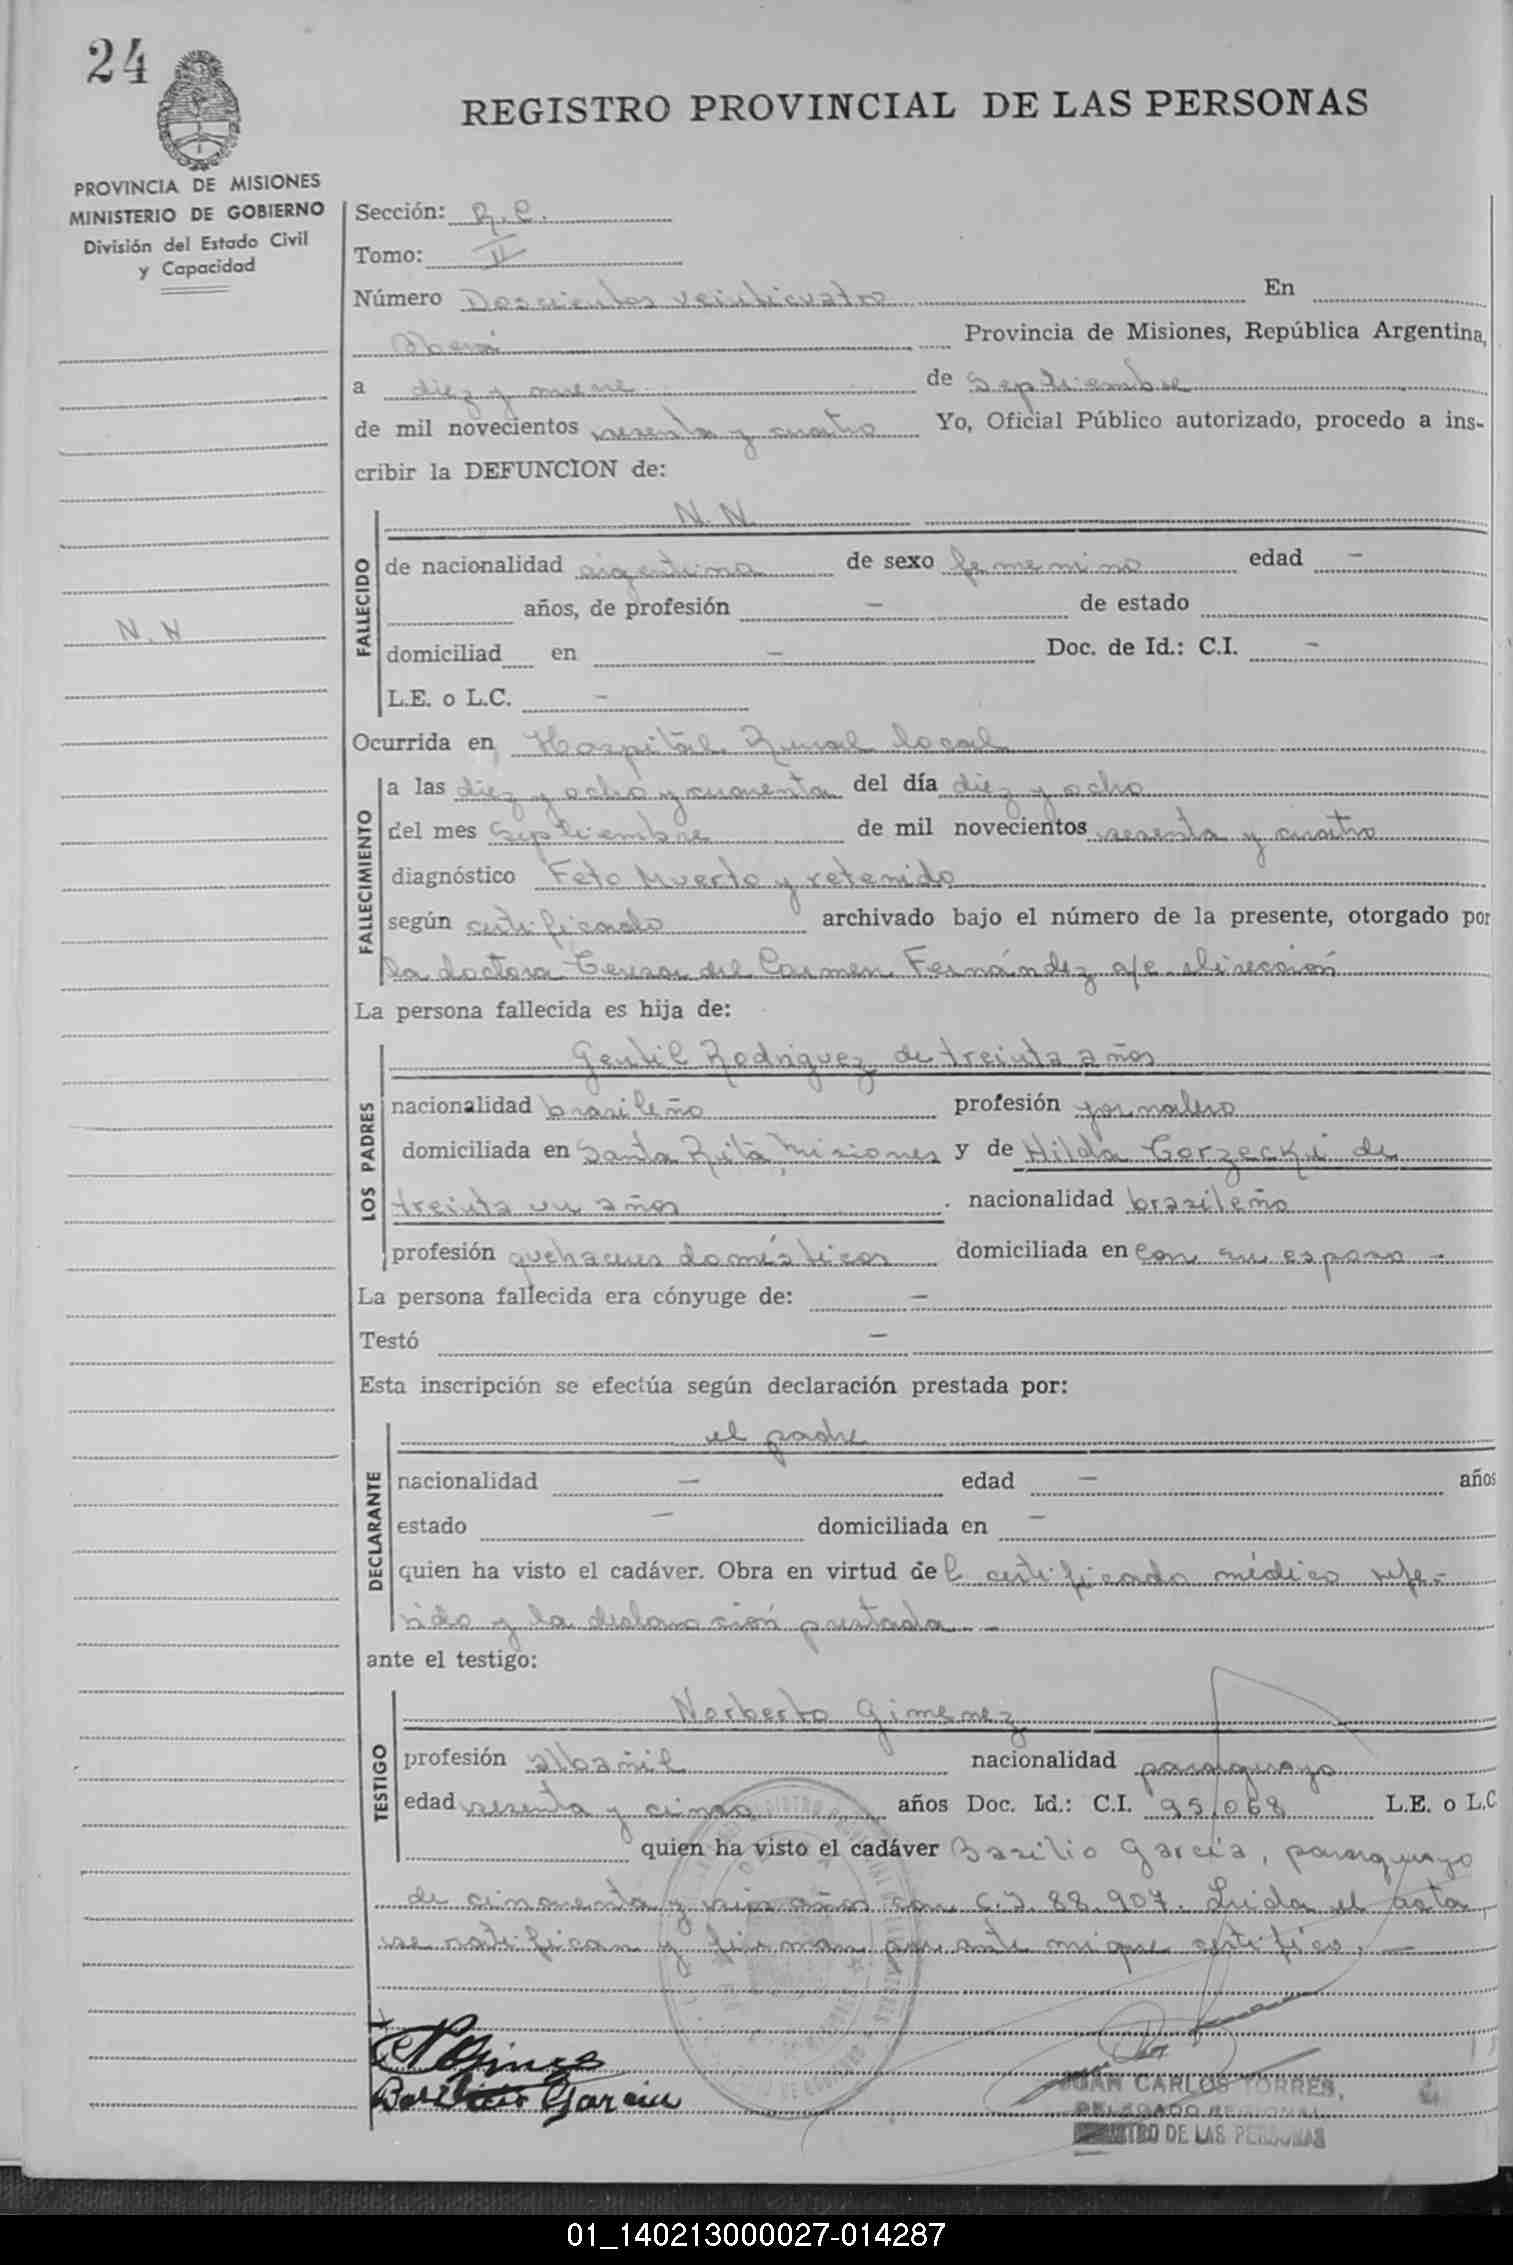 24
REGISTRO PROVINCIAL DE LAS PERSONAS
PROVINCIA DE MISIONES
MINISTERIO DE GOBIERNO
División del Estado Civil
y Capacidad
Sección: R.C.
Tomo: II
Número Doscientos veinticuatro En
Oberá Provincia de Misiones, República Argentina,
a diez y nueve de Septiembre
de mil novecientos sesenta y cuatro Yo, Oficial Público autorizado, procedo a ins-
cribir la DEFUNCION de:
N.N.
FALLECIDO
de nacionalidad argentina de sexo femenino edad -
años, de profesión - de estado
N.N
domiciliad en - Doc. de Id.: C.I. -
L.E. o L.C. -
Ocurrida en Hospital Rural local
FALLECIMIENTO
a las diez y ocho y cuarenta del día diez y ocho
del mes Septiembre de mil novecientos sesenta y cuatro
diagnóstico Feto Muerto y retenido
según certificado archivado bajo el número de la presente, otorgado por
la doctora Teresa del Carmen Fernández a/c dirección
La persona fallecida es hija de:
LOS PADRES
Gentil Rodriguez de treinta años
nacionalidad brasileño profesión jornalero
domiciliada en Santa Rita, Misiones y de Hilda Gorzecki de
treinta un años . nacionalidad brasileño
profesión quehaceres domésticos domiciliada en con su esposo -
La persona fallecida era cónyuge de: -
Testó -
Esta inscripción se efectúa según declaración prestada por:
DECLARANTE
el padre
nacionalidad - edad - años
estado - domiciliada en -
quien ha visto el cadáver. Obra en virtud de l certificado médico refe-
rido y la declaración prestada -
ante el testigo:
TESTIGO
Norberto Gimenez
profesión albañil nacionalidad paraguayo
edad sesenta y cinco años Doc. Id.: C.I. 95.068 L.E. o L.C
quien ha visto el cadáver Basilio García, paraguayo
de cincuenta y seis años con C.I. 88.907. Leida el acta,
se ratifican y firman por ante mi que certifico. -
Basilio Garcia
JUAN CARLOS TORRES,
DELEGADO REGIONAL
REGISTRO DE LAS PERSONAS
01_140213000027-014287